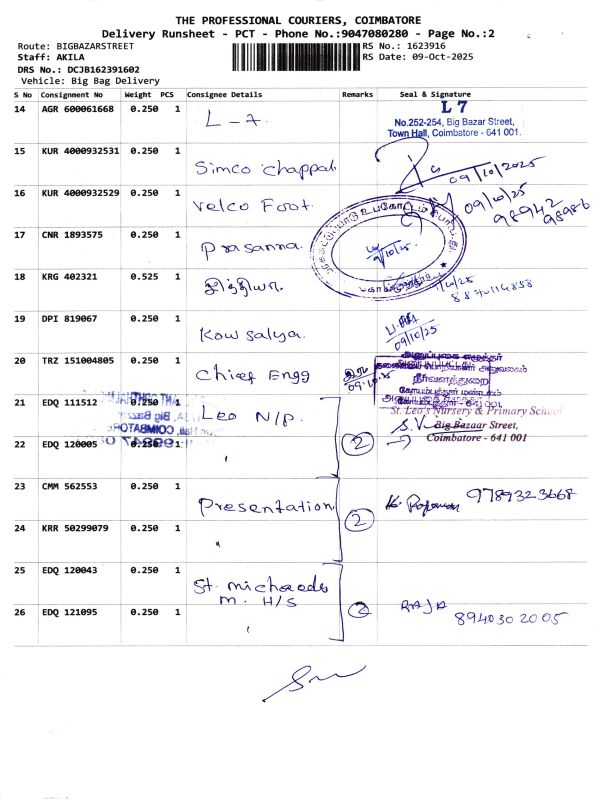 THE PROFESSIONAL COURIERS, COIMBATORE
Delivery Runsheet - PCT - Phone No.:9047080280 - Page No.:2
Route: BIGBAZARSTREET
RS No.: 1623916
Staff: AKILA
RS Date: 09-Oct-2025
DRS No.: DCJB162391602
Vehicle: Big Bag Delivery
S No Consignment No Weight PCS Consignee Details Remarks Seal & Signature
14 AGR 600061668 0.250 1 L-7 L 7
No.252-254, Big Bazar Street,
Town Hall, Coimbatore - 641 001.
15 KUR 4000932531 0.250 1 Simco chappal 09/10/2025
16 KUR 4000932529 0.250 1 Velco Foot. 09/10/25
98942 98986
17 CNR 1893575 0.250 1 Prasanna.
18 KRG 402321 0.525 1
8870114838
19 DPI 819067 0.250 1 Kowsalya. 09/10/25
20 TRZ 151004805 0.250 1 Chief Engg
நீர்வளத்துறை
21 EDQ 111512 0.250 1 Leo N/P.
St. Leo's Nursery & Primary School
Big Bazaar Street,
Coimbatore - 641 001
22 EDQ 120005 0.250 1 " 2
23 CMM 562553 0.250 1 Presentation 9789323668
24 KRR 50299079 0.250 1 " 2
25 EDQ 120043 0.250 1 St. michaels
m. H/S
26 EDQ 121095 0.250 1 " 2 RAJA
8940302005